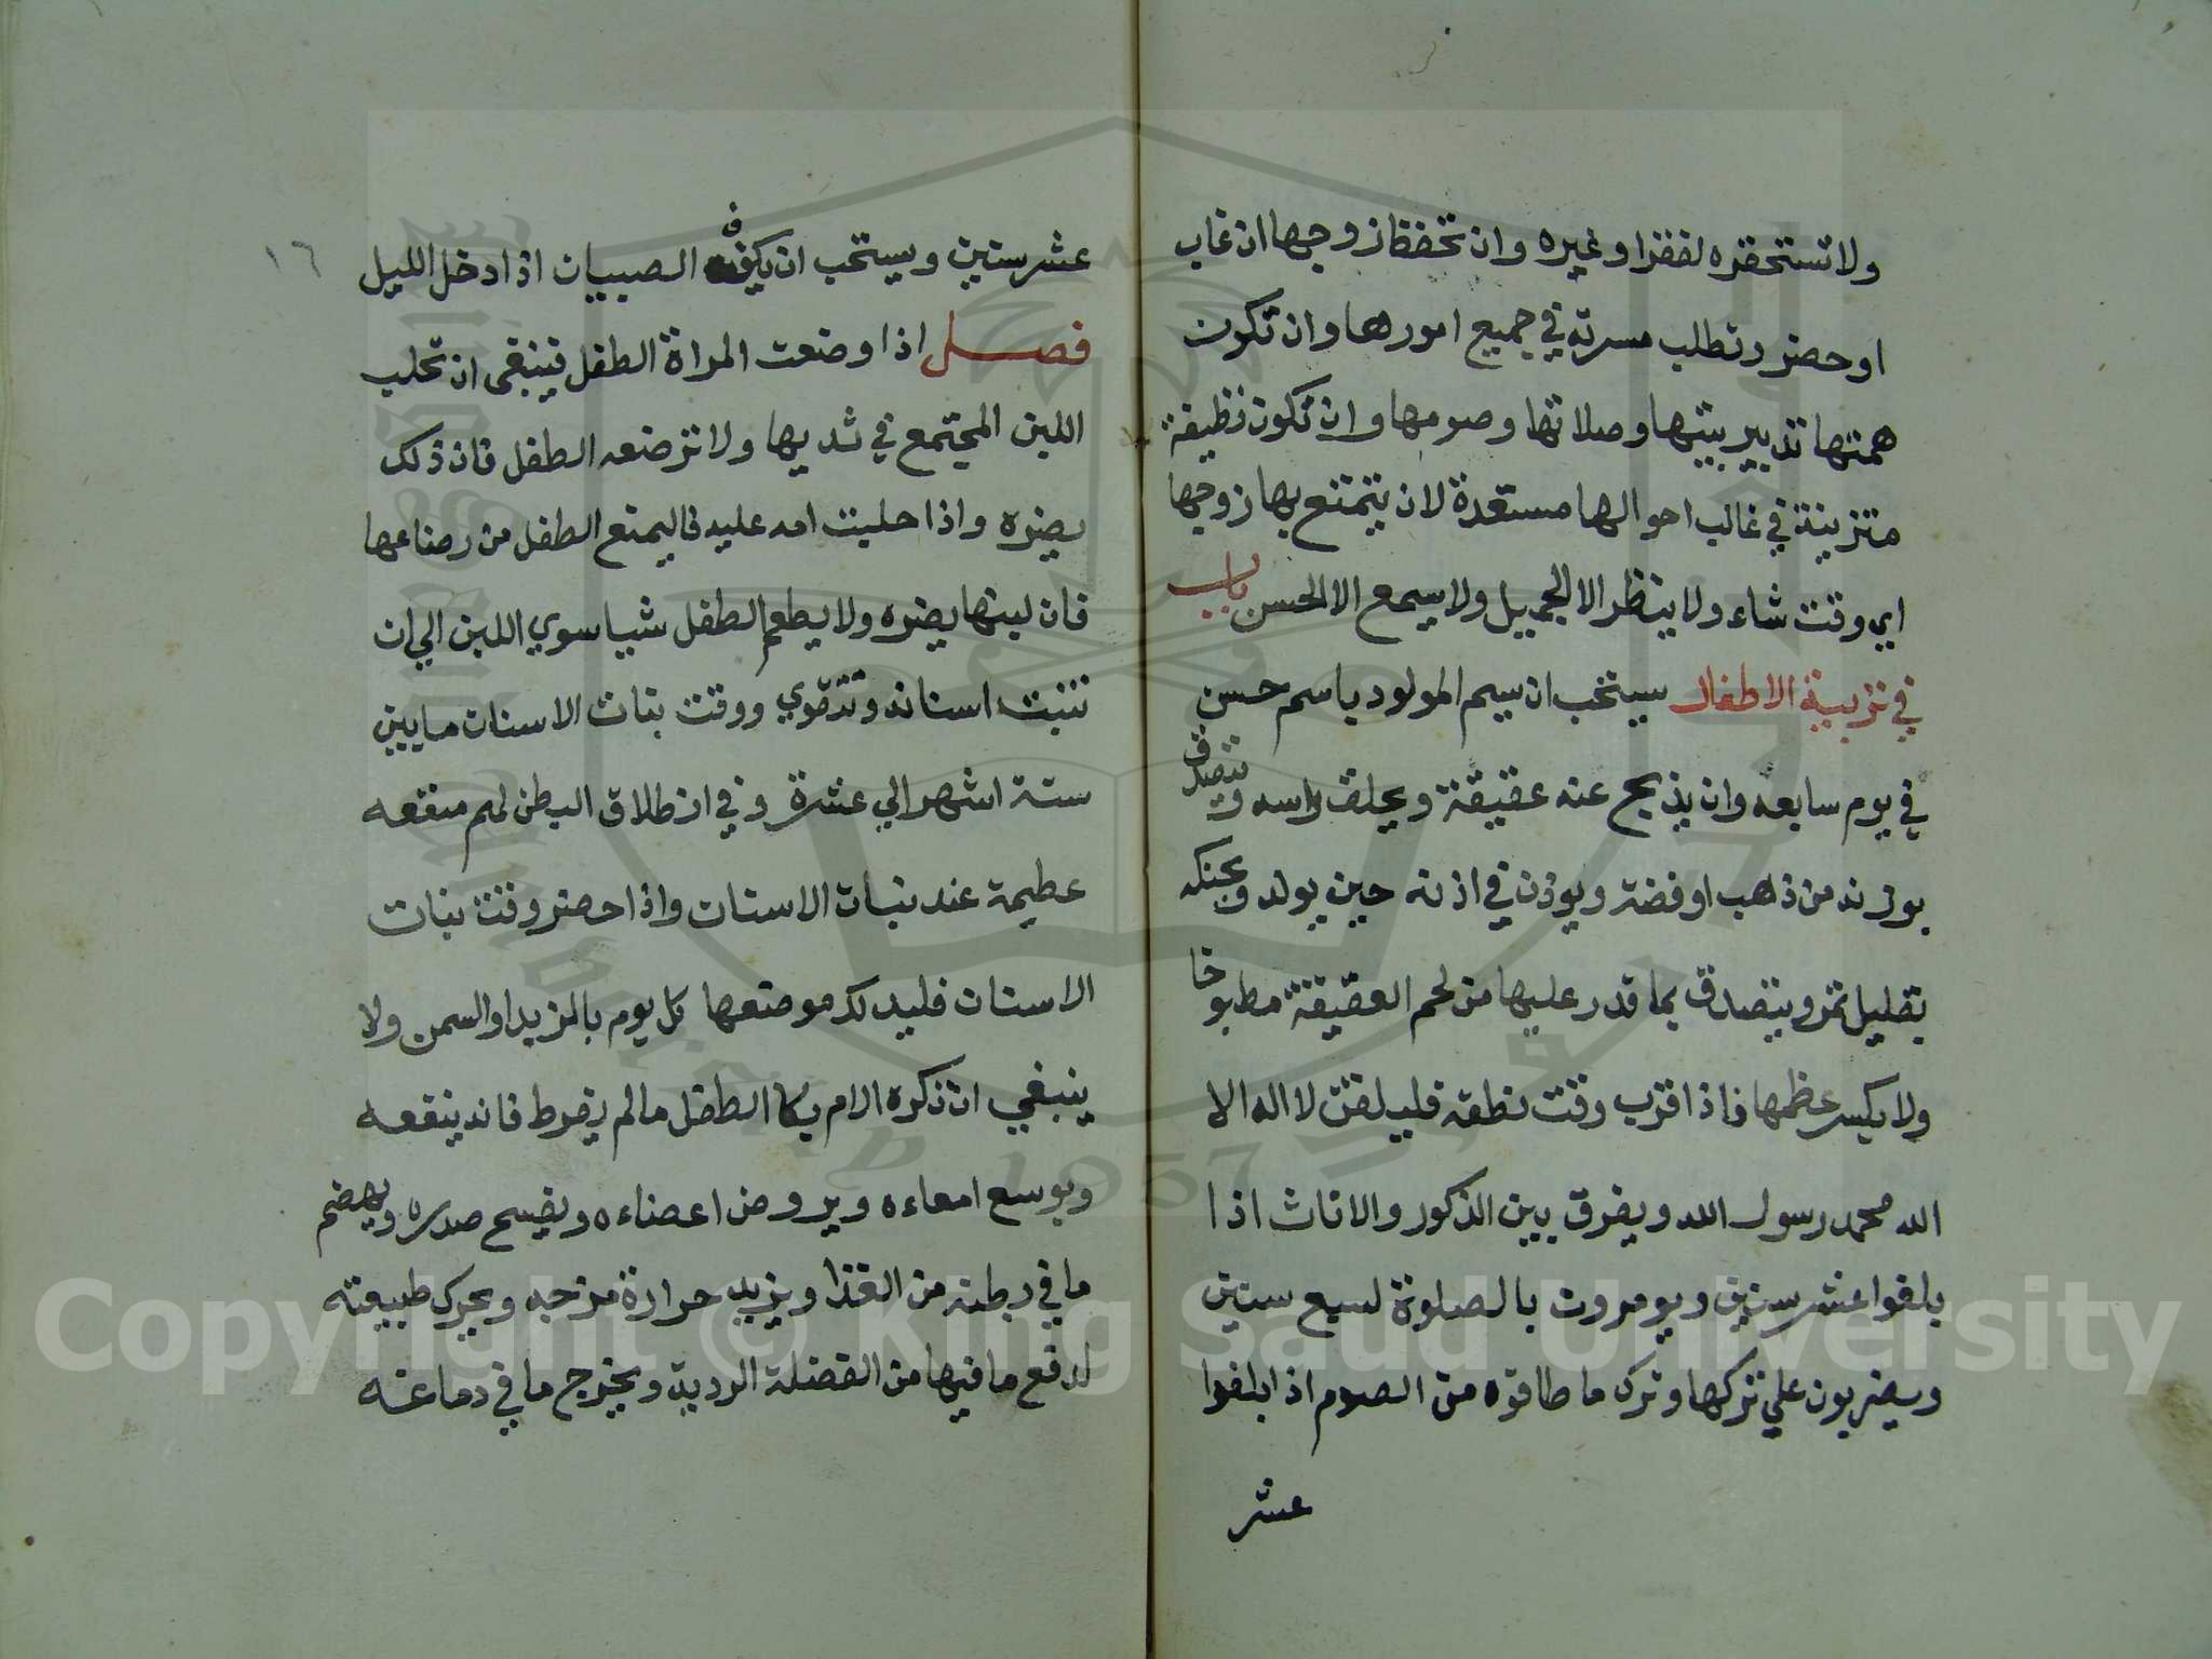 ولا تستحقره لفقر او غيره وان تحفظ زوجها ان غاب
او حضر وتطلب مسرته في جميع امورها وان تكون
همتها تدبير بيتها وصلاتها وصومها وان تكون نظيفة
متزينة في غالب احوالها مستعدة لان يتمتع بها زوجها
اي وقت شاء ولا ينظر الا الجميل ولا يسمع الا الحسن باب
في تربية الاطفال يستحب ان يسم المولود باسم حسن
في يوم سابعه وان يذبح عنه عقيقة ويحلق راسه وتتصدق
بوزنه من ذهب او فضة ويوذن في اذنه حين يولد ويحنكه
بقليل تمر ويتصدق بما قدر عليها من لحم العقيقة مطبوخا
ولا يكسر عظمها فاذا قرب وقت نطقه فليلقن لا اله الا
الله محمد رسول الله ويفرق بين الذكور والاناث اذا
بلغوا عشر سنين ويومرون بالصلوة لسبع سنين
ويضربون علي تركها وترك ما طاقوه من الصوم اذا بلغوا
عشر
١٦
عشر سنين ويستحب ان يكف الصبيان اذا دخل الليل
فصل اذا وضعت المراة الطفل فينبغى ان تحلب
اللبن المجتمع في ثديها ولا ترضعه الطفل فان ذلك
يضره واذا حبلت امه عليه فاليمنع الطفل من رضاعها
فان لبنها يضره ولا يطعم الطفل شيا سوي اللبن الي ان
تنبت اسنانه وتتقوي ووقت نبات الاسنان ما بين
ستة اشهر الي عشرة وفي انطلاق البطن لهم منفعه
عظيمة عند نبات الاسنان واذا حضر وقت نبات
الاسنان فليدلك موضعها كل يوم بالزبد او السمن ولا
ينبغي ان تكره الام بكا الطفل مالم يفرط فانه ينفعه
ويوسع امعاءه ويروض اعضاءه ويفسح صدره ويهضم
ما في بطنه من الغذا ويزيد حرارة مزجه ويحرك طبيعته
لدفع ما فيها من الفضلة الردية ويخرج ما في دماغه
Copyright © King Saud University
1957